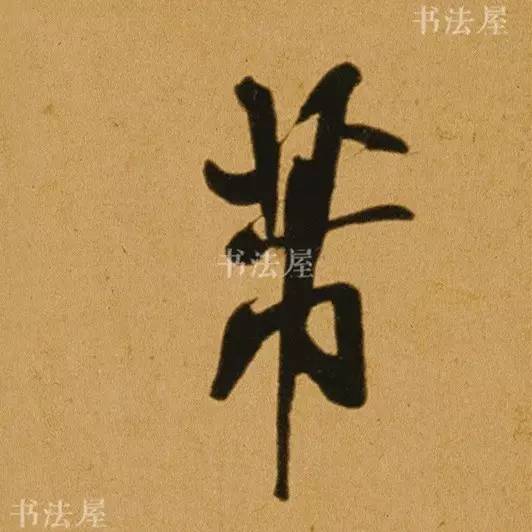 书法屋
芾
书法屋
书法屋